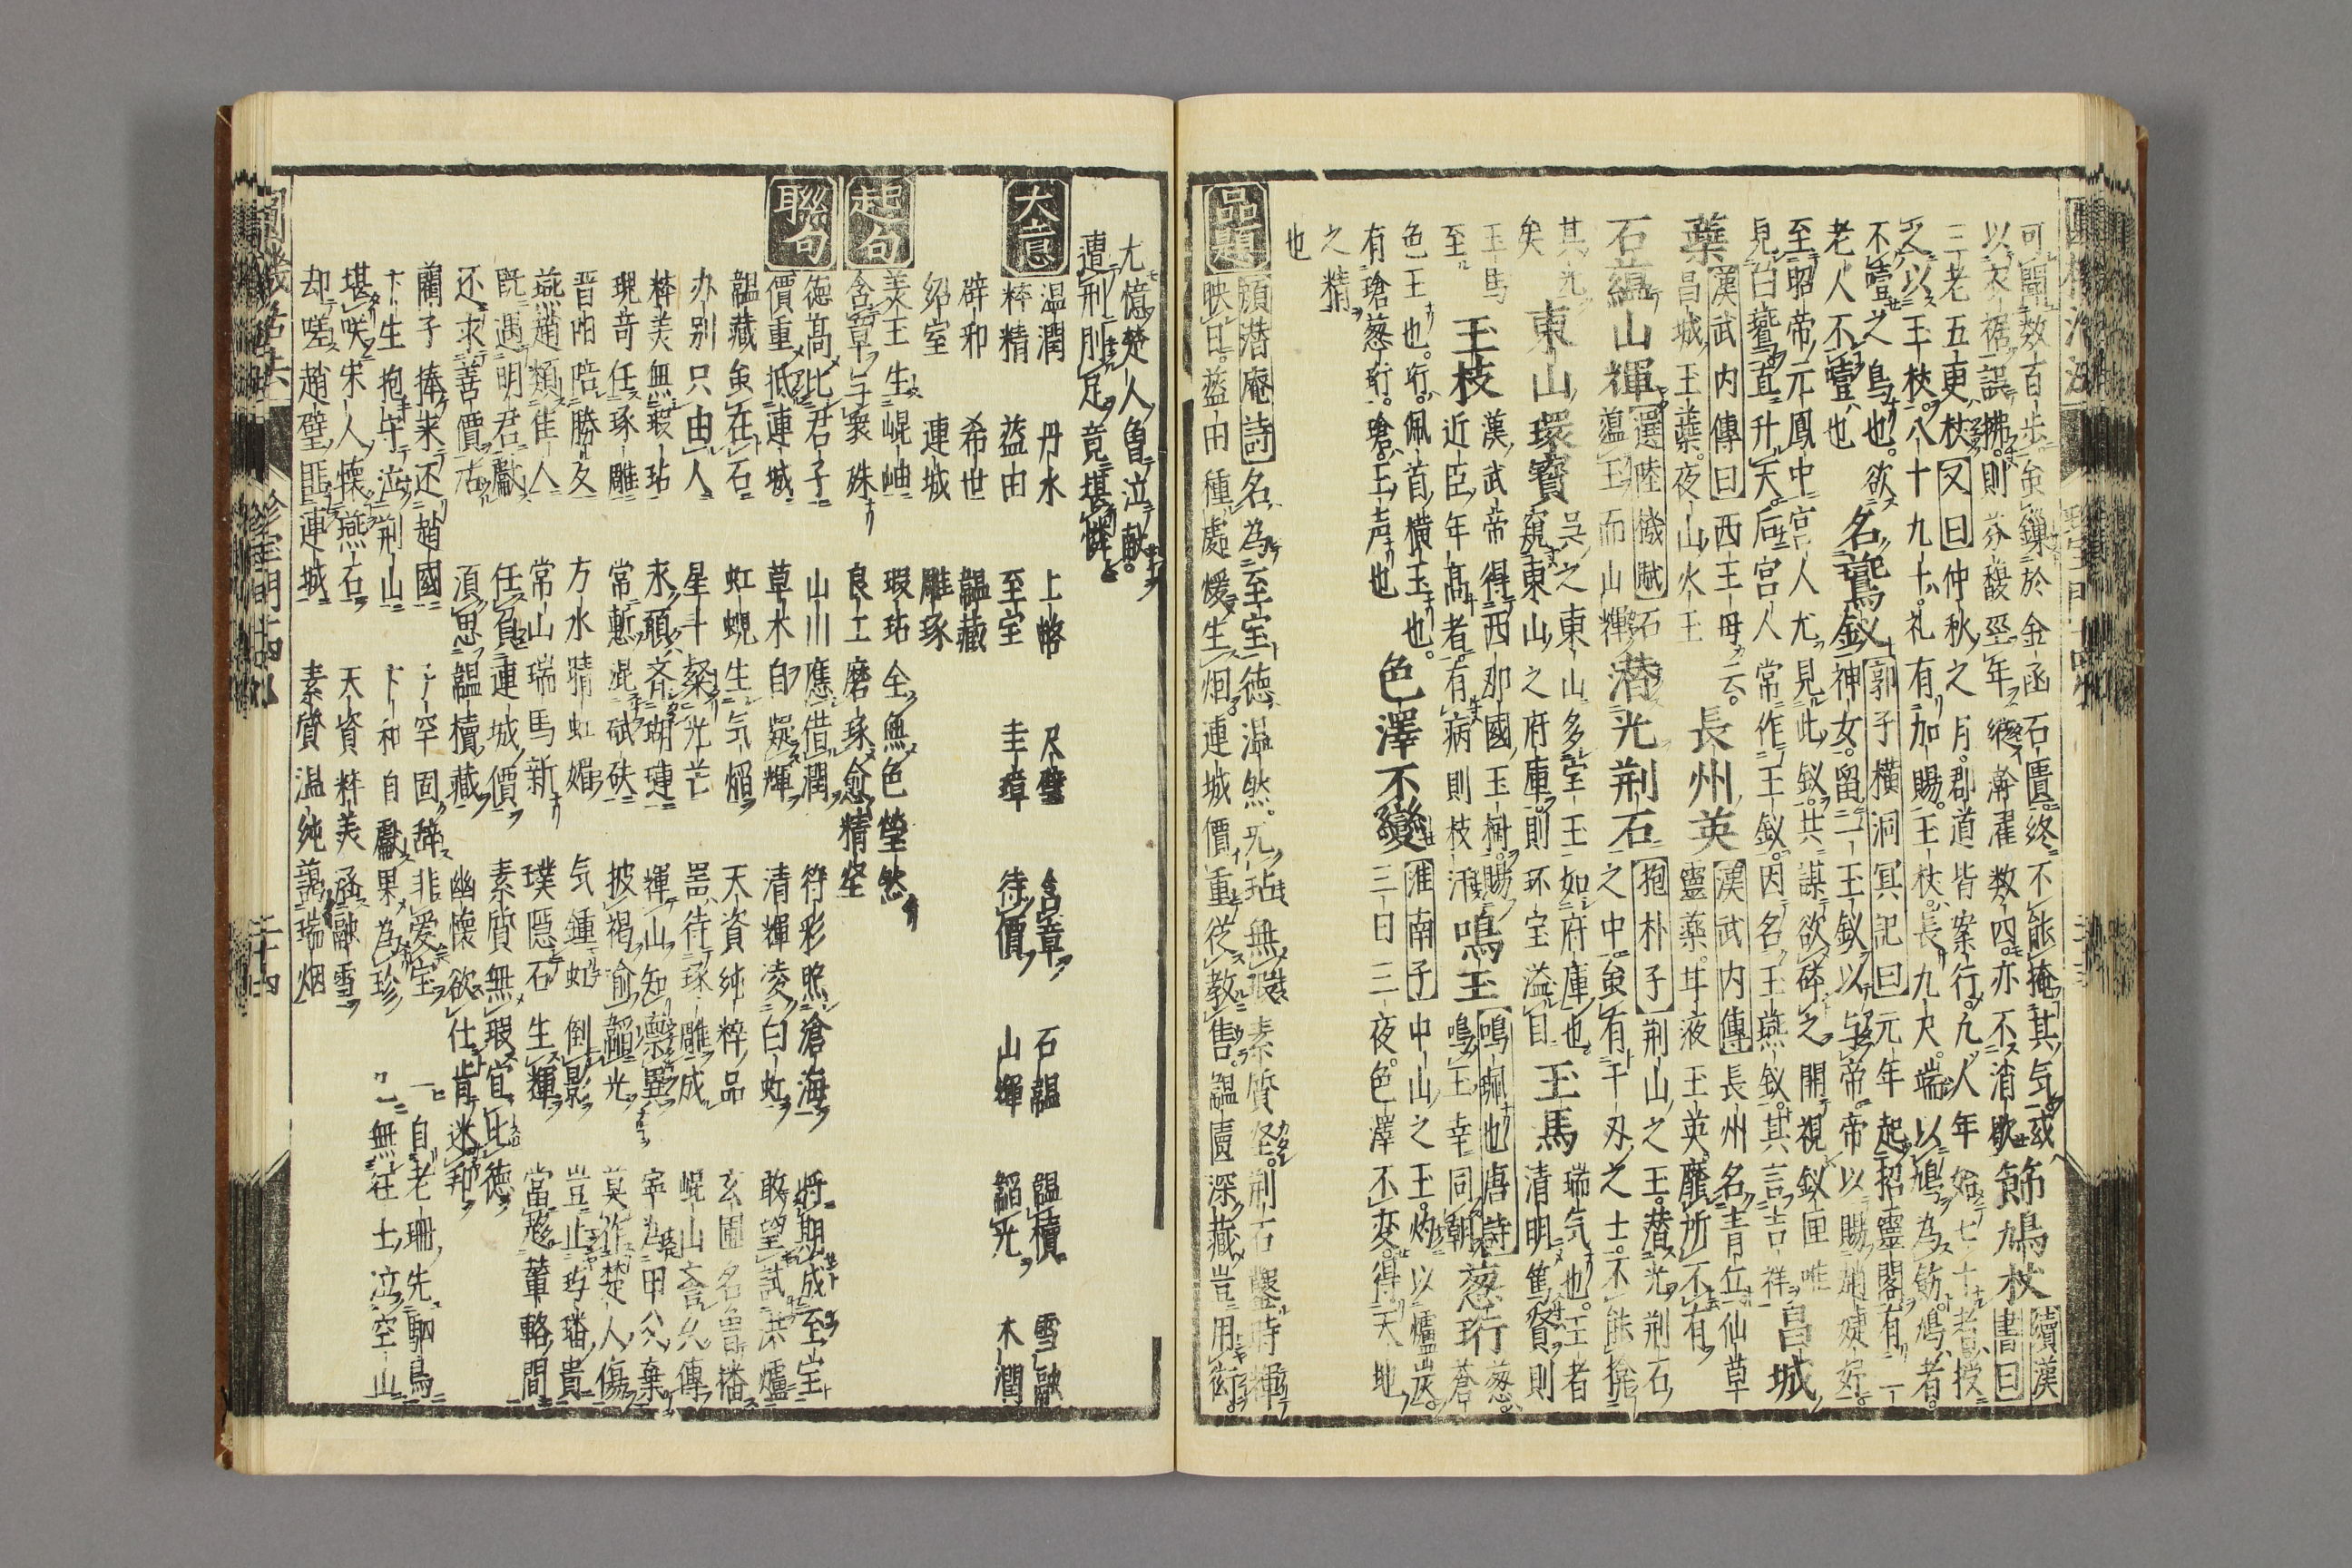 可聞數百步虽鏁於金函石匱終不能掩其気或飾鳩杖續漢書曰
以衣裾誤拂則芬馥至年縱澣濯数四亦不消歇
三老五更杖又曰仲秋之月郡道皆案行九人年始七十者授
之以玉杖八十九十礼有加賜玉杖長九尺端以鳩為飾鳩者
不噎之鳥也欲
老人不噎也名鸞釵郭子横洞冥記曰元年起招靈閣有一
神女留一玉釵以与帝帝以賜趙婕妤
至昭帝元鳳中宮人尤見此釵共謀欲碎之開視釵匣唯
見白鷰直升天后宮人常作玉釵因名玉燕釵其言吉祥昌城
葉漢武内傳曰西王母云長州英漢武内傳長州名青丘仙草
昌城玉蘂夜山火玉靈藥甘液玉英靡所不有
石蘊山輝選陸機賦石蘊玉而山輝潜光荆石抱朴子荆山之玉潜光荆石
之中虽有千刃之土不能揜
其光東山環寳呉之東山多宝玉如府庫也
窺東山之府庫則环宝溢目玉馬瑞気也王者清明篤賢則
矣玉馬
至玉枝漢武帝得西那國玉樹賜
近臣年髙者有病則枝汗鳴玉鳴珮也唐詩鳴玉幸同朝葱珩葱蒼
色玉也珩佩首横玉也
有瑲葱珩瑲玉声也色澤不變淮南子中山之玉灼以爐炭
三日三夜色澤不変得天地
之精
也
品題
顧潜庵詩名為至宝徳温然无玷無瑕素質堅荆石鑿時輝
映日蓝田種處煖生烟連城價重従教售韞匵深藏豈用衒
尤憶楚人魯泣献
遭刑刖足竟堪憐
大意
温潤 丹水 上幣 尺璧 含章 石韞 韞櫝 雪融
粹精 蓝田 至宝 圭璋 待價 山輝 韜光 木潤
辟邪 希世 韞藏
紹室 連城 雕琢
起句
美玉生崐岫 瑕玷全無色瑩然
含章子衆殊 良工磨琢愈精堅
聯句
徳髙比君子 山川應借潤 符彩照滄海 将期成至宝
價重抵連城 草木自疑輝 清輝凌白虹 敢望試洪爐
韞藏虽在石 虹蜺生気熖 天資純粹品 玄圃名魯璠
办别只由人 星斗粲光芒 噐待琢雕成 崐山言久傳
粹美無瑕玷 来頭斉瑚璉 輝山知禀異 寧為甲公棄
現竒任琢雕 常慙混碔砆 披褐渝韜光 莫作楚人傷
晋陌陪勝友 方水晴虹媚 気鍾虹倒影 豈止玙璠貴
燕趙類隹人 常山瑞馬新 璞隱石生輝 當趍董輅間
既遇明君獻 任負連城價 素質無瑕宜比徳
还求善價沽 湏思韞櫝藏 幽懐欲仕肯迷邦
藺子捧来还趙國 子罕固辞非爱宝 自老珊先馹鳥
卞生抱守泣荆山 卞和自獻果為珍 無徃士泣空山
堪咲宋人懐燕石 天資粹美涵融雪
却嗟趙璧匪連城 素質温純藹瑞烟
三十四